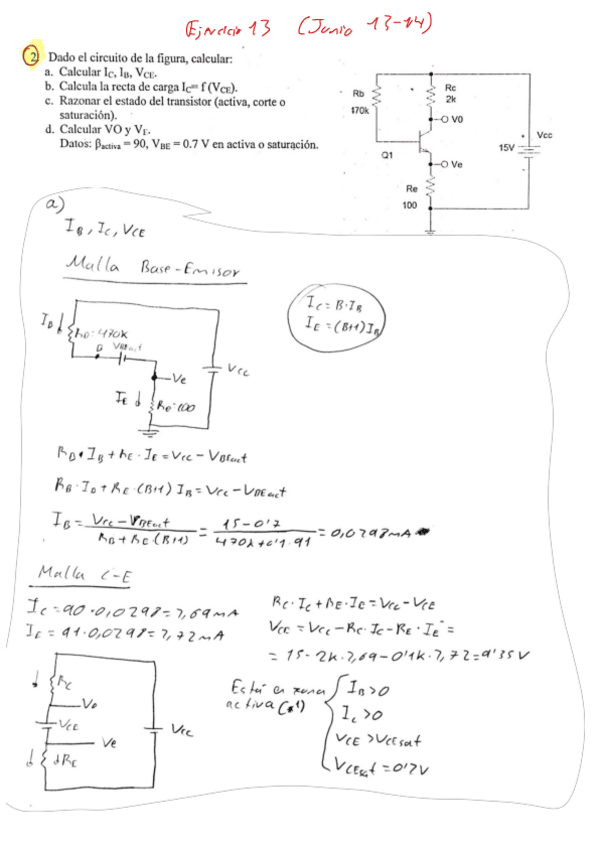 Ejercicio 13 (Junio 13-14)
2. Dado el circuito de la figura, calcular:
a. Calcular IC, IB, VCE.
b. Calcula la recta de carga IC= f (VCE).
c. Razonar el estado del transistor (activa, corte o
saturación).
d. Calcular VO y VE.
Datos: βactiva = 90, VBE = 0.7 V en activa o saturación.
Rb
470k
Rc
2k
V0
Q1
Ve
Re
100
15V
Vcc
a)
IB, IC, VCE
Malla Base-Emisor
IC = B·IB
IE = (B+1) IB
IB
Rb=470K
B
VBEact
Ve
VCC
IE
Re=100
RB·IB + RE·IE = VCC - VBEact
RB·IB + RE·(B+1) IB = VCC - VBEact
IB = VCC - VBEact / RB + RE·(B+1) = 15-0'7 / 470k+0'1·91 = 0,0298mA
Malla C-E
IC = 90·0,0298 = 2,69mA
IE = 91·0,0298 = 2,72mA
RC·IC + RE·IE = VCC - VCE
VCE = VCC - RC·IC - RE·IE =
= 15 - 2k·2,69 - 0'1k·2,72 = 9'35V
RC
Vo
VCE
Ve
RE
VCC
Está en zona
activa (*1)
IB>0
IC>0
VCE >VCEsat
VCEsat = 0'2V